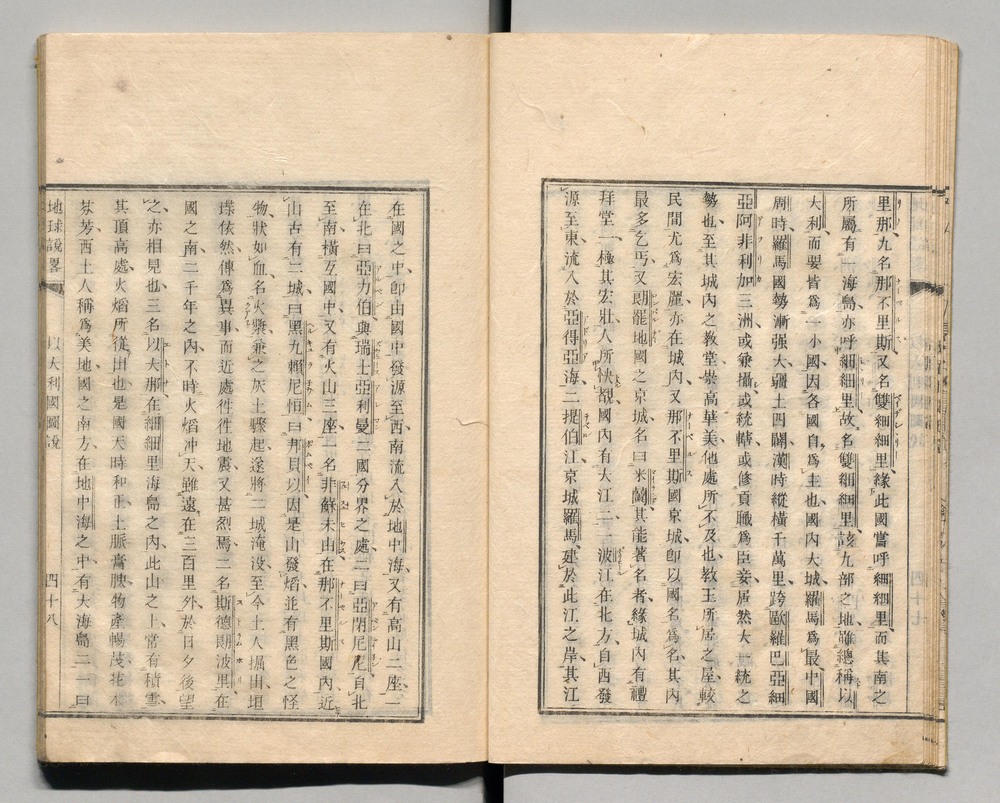 里那九名那不里斯又名雙細細里緣此國嘗呼細細里而其南之
所屬有一海島亦呼細細里故名雙細細里該九部之地雖總稱以
大利而要皆爲一小國因各國自爲主也國內大城羅馬爲最中國
周時羅馬國勢漸强大疆土四闢漢時縱橫千萬里跨歐羅巴亞細
亞阿非利加三洲或兼攝或統轄或修貢職爲臣妾居然大一統之
勢也至其城內之教堂崇高華美他處所不及也教王所居之屋較
民間尤爲宏麗亦在城內又那不里斯國京城卽以國名爲名其內
最多乞丐又郎罷地國之京城名曰米蘭其能著名者緣城內有禮
拜堂一極其宏壯人所快覩國內有大江二一波江在北方自西發
源至東流入於亞得亞海二提伯江京城羅馬建於此江之岸其江
在國之中卽由國中發源至西南流入於地中海又有高山二座一
在北曰亞力伯與瑞士亞利曼二國分界之處二曰亞閉尼尼自北
至南橫亙國中又有火山三座一名非蘇未由在那不里斯國內近
山古有二城曰黑九賴尼恒曰邦貝以因是山發熖並有黑色之怪
物狀如血名火漿兼之灰土驟起遂將二城淹没至今土人掘出垣
墣依然傳爲異事而近處徃徃地震又甚烈焉二名斯德郎波里在
國之南二千年之內不時火熖冲天雖遠在三百里外於日夕後望
之亦相見也三名以大那在細細里海島之內此山之上常有積雪
其頂高處火熖所從出也是國天時和正土脈膏腴物產暢茂花木
芬芳西土人稱爲美地國之南方在地中海之中有大海島二一曰
地球說畧
以大利國圖說
四十八